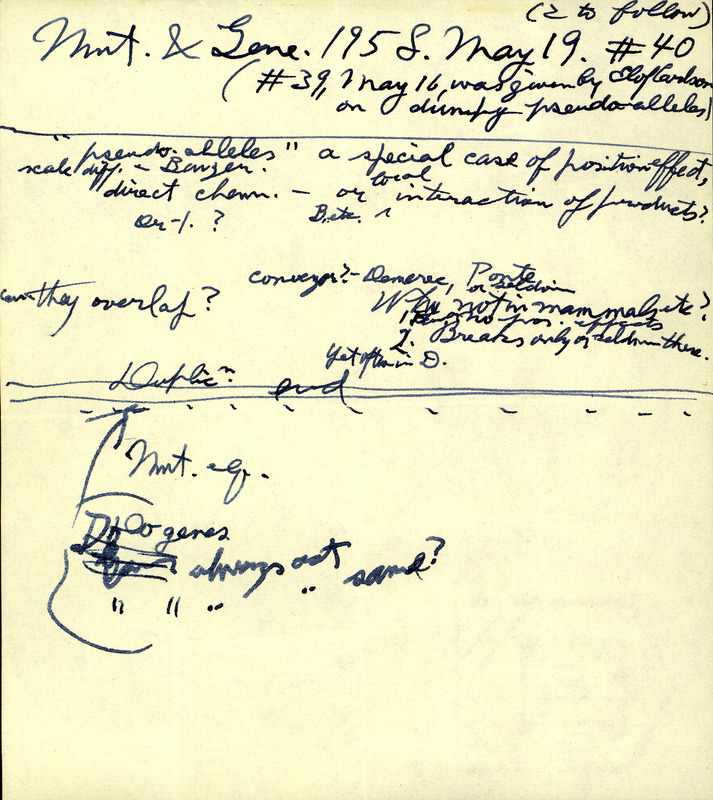 (2 to follow)
Mut. & Gene. 1958. May 19. #40
(#39, May 16, was given by Elof Carlson
on dumpy pseudo-alleles)
"pseudo-alleles" a special case of position effect,
scale diff. - Benzer.
direct chem. - or local interaction of products?
or-1. ?
conveyor? - Demerec, Ponte
they overlap?
or seldom
Why not in mammals etc?
1. no pos. effects
2. Breaks only or seldom there.
Yet often in D.
Duplicn.
end
Mut. eq.
Do genes
always act same?
" " " "